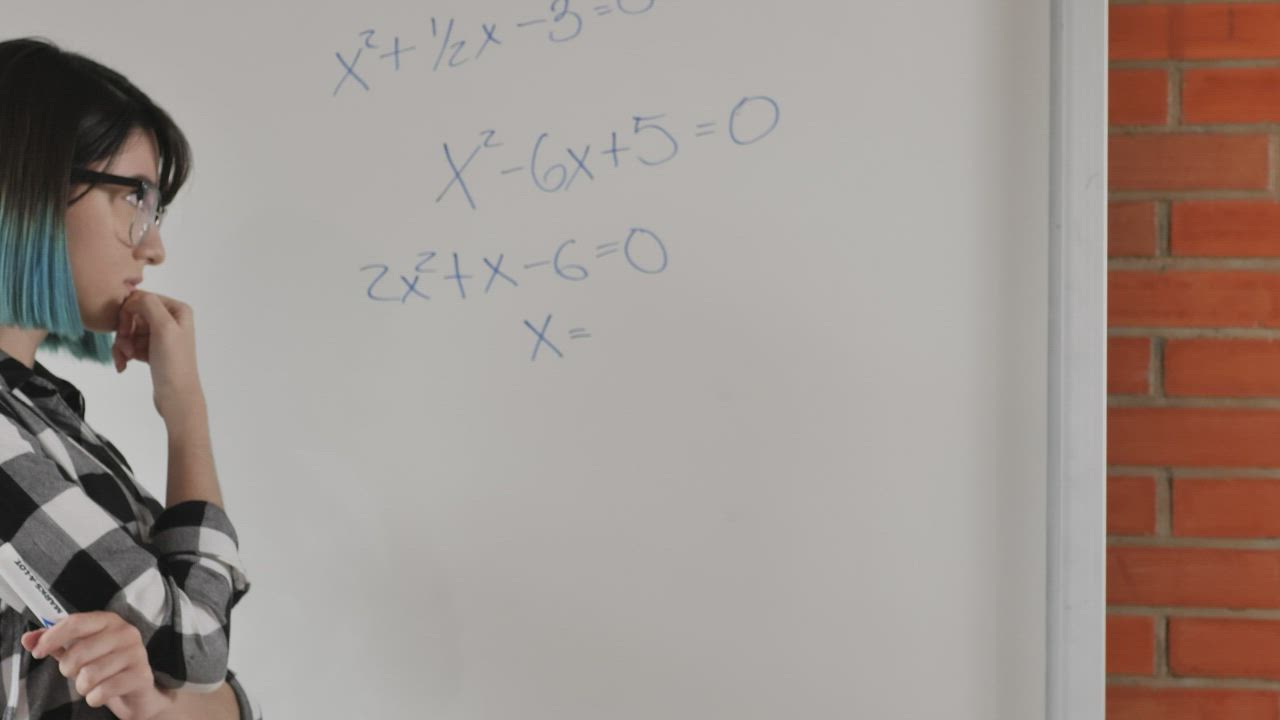 x² + ½x - 3 = 0
x² - 6x + 5 = 0
2x² + x - 6 = 0
x =
MARKS-A-LOT